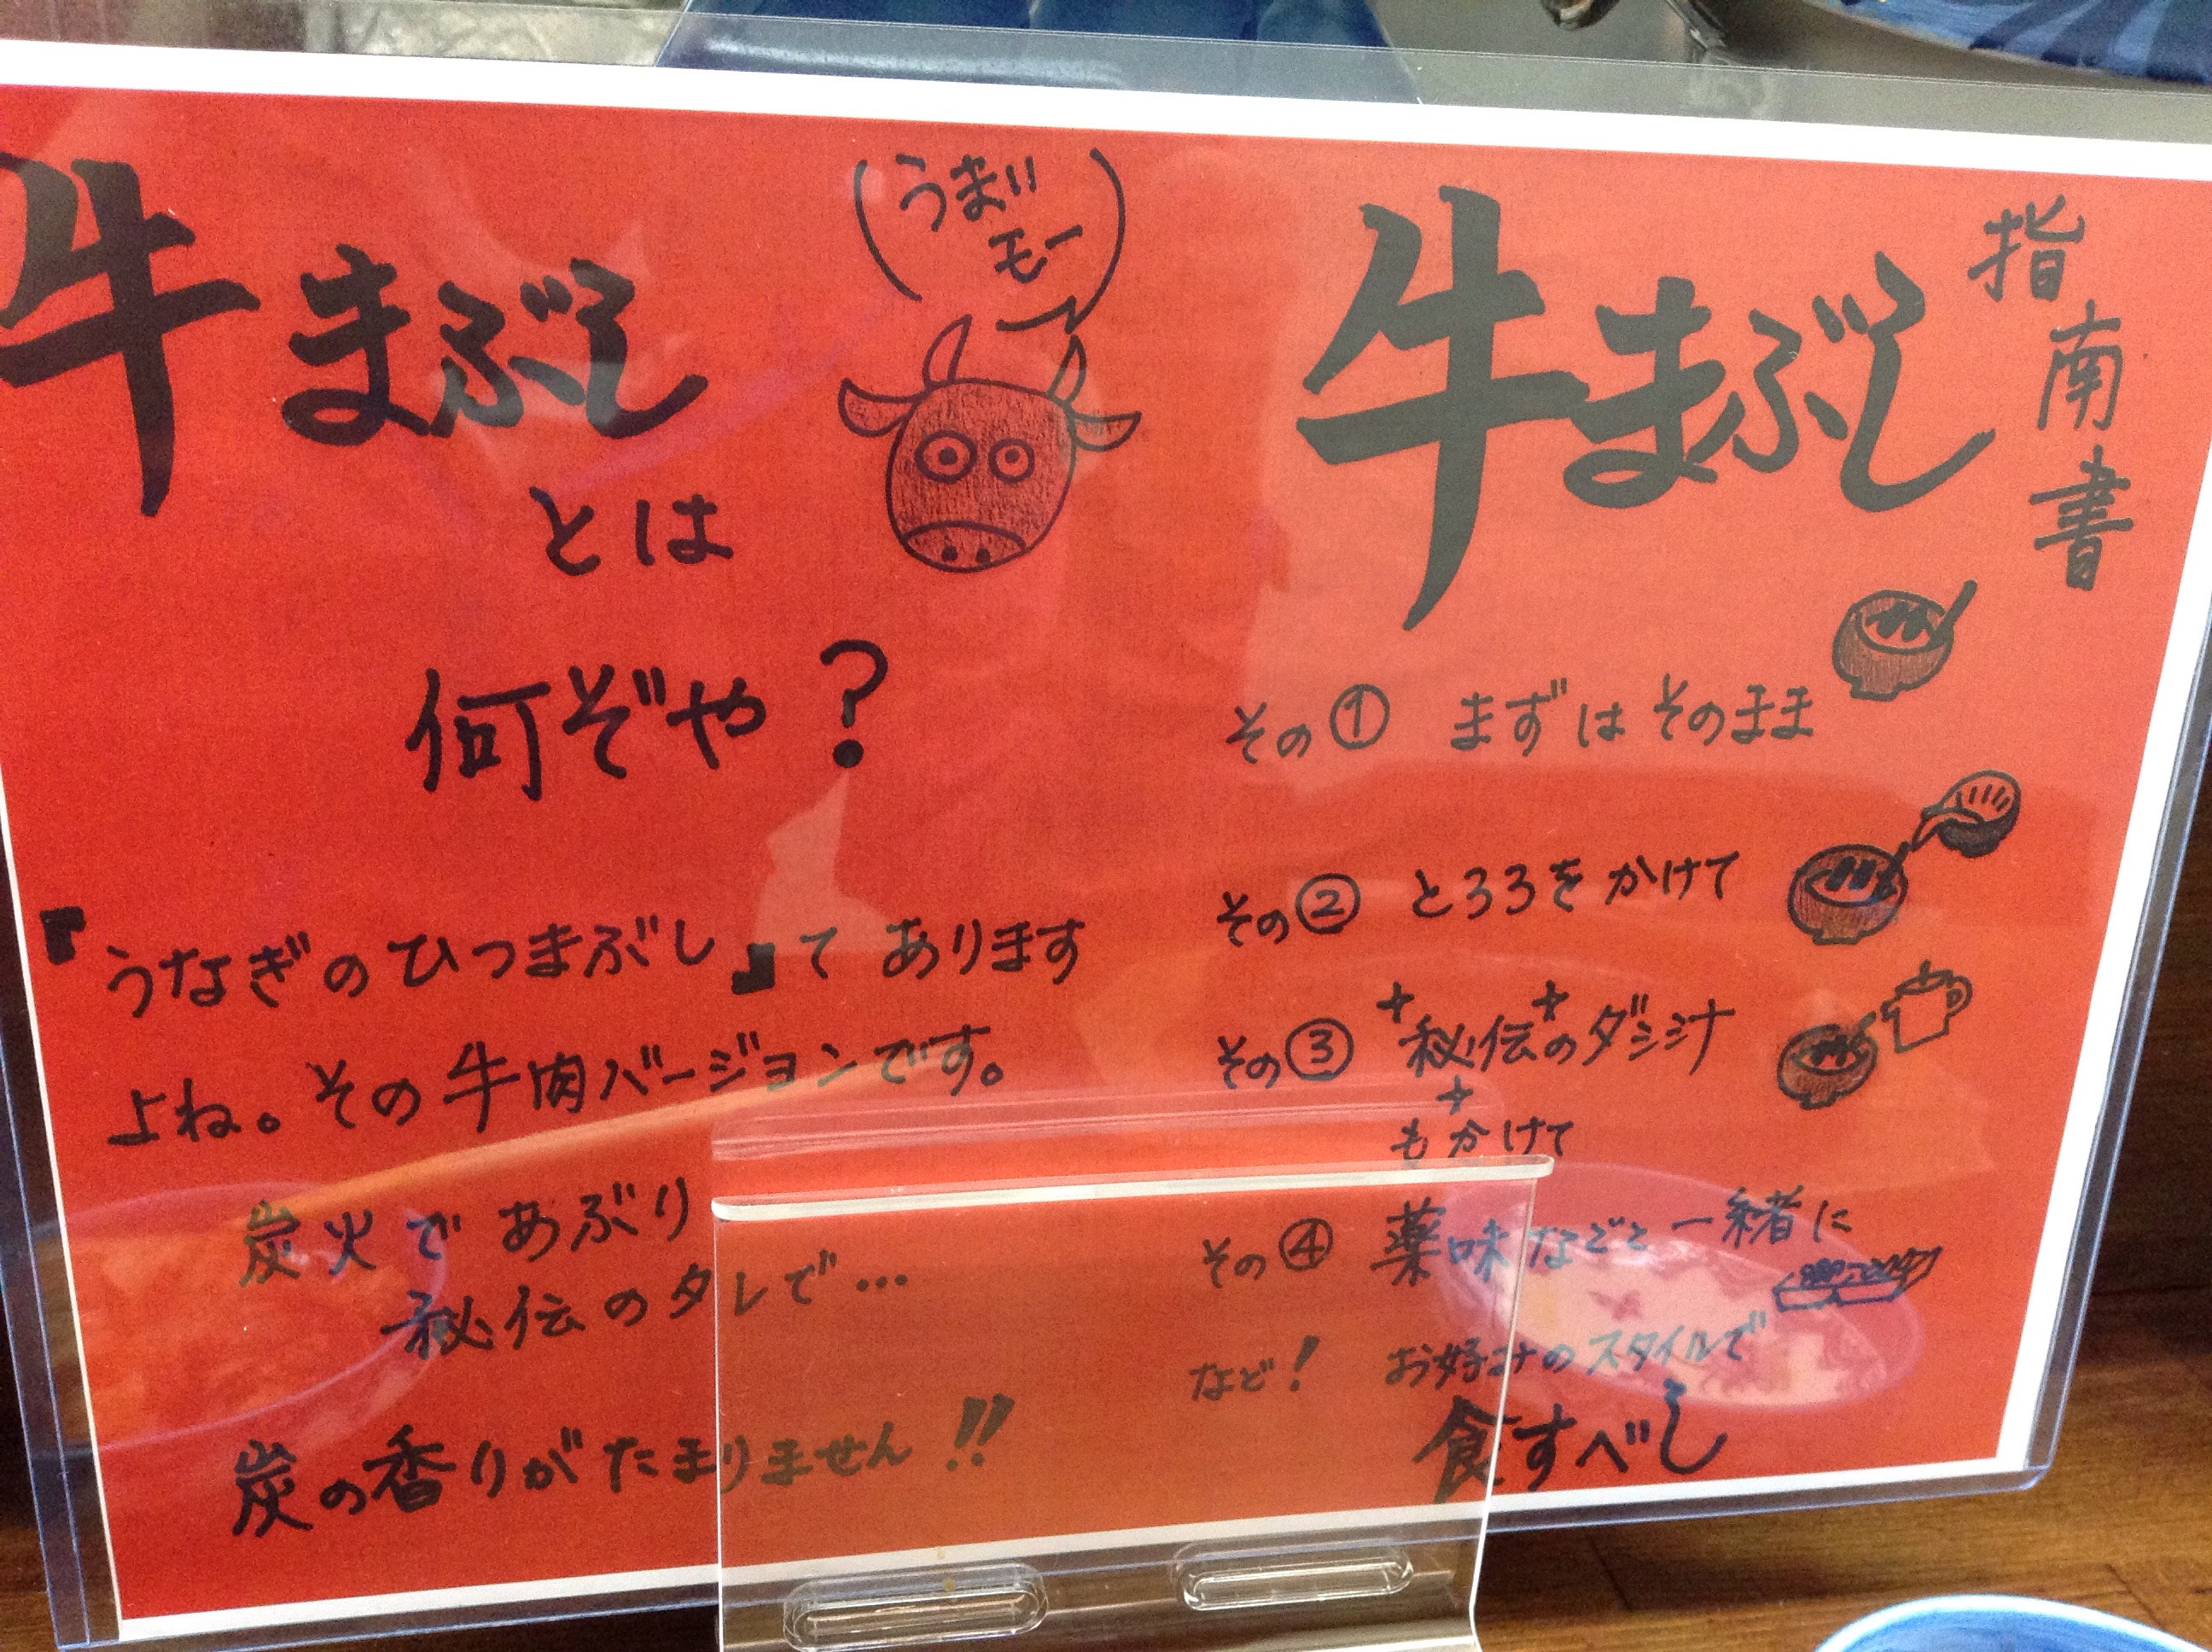 牛まぶし
とは
何ぞや？
うまい
モー
『うなぎのひつまぶし』て あります
よね。その牛肉バージョンです。
炭火であぶり
秘伝のタレで…
炭の香りがたまりません!!
牛まぶし
指南書
その① まずはそのまま
その② とろろをかけて
その③ 秘伝のダシ汁
もかけて
その④ 薬味などと一緒に
など！ お好みのスタイルで
食すべし